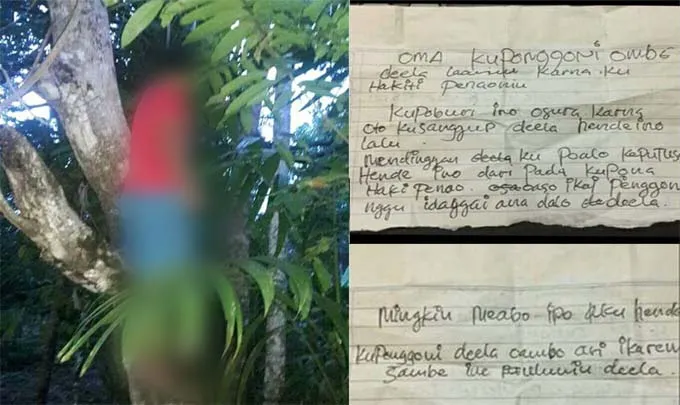 OMA KUPONGGONI OMBE
deela karna ku
Hakiti penaomu
Kupoburi ino osura karna
oto kusanggup deela hende ino
lalu.
Mendingan deela ku poalo keputusa
Hende ino dari pada kupona
Haki penao. ikai penggon
nggu idaggai aina dalo deela.
Mingkin meabo ipo aku hende
kupenggoni deela oambo ari ikaren
sambe ine deela.